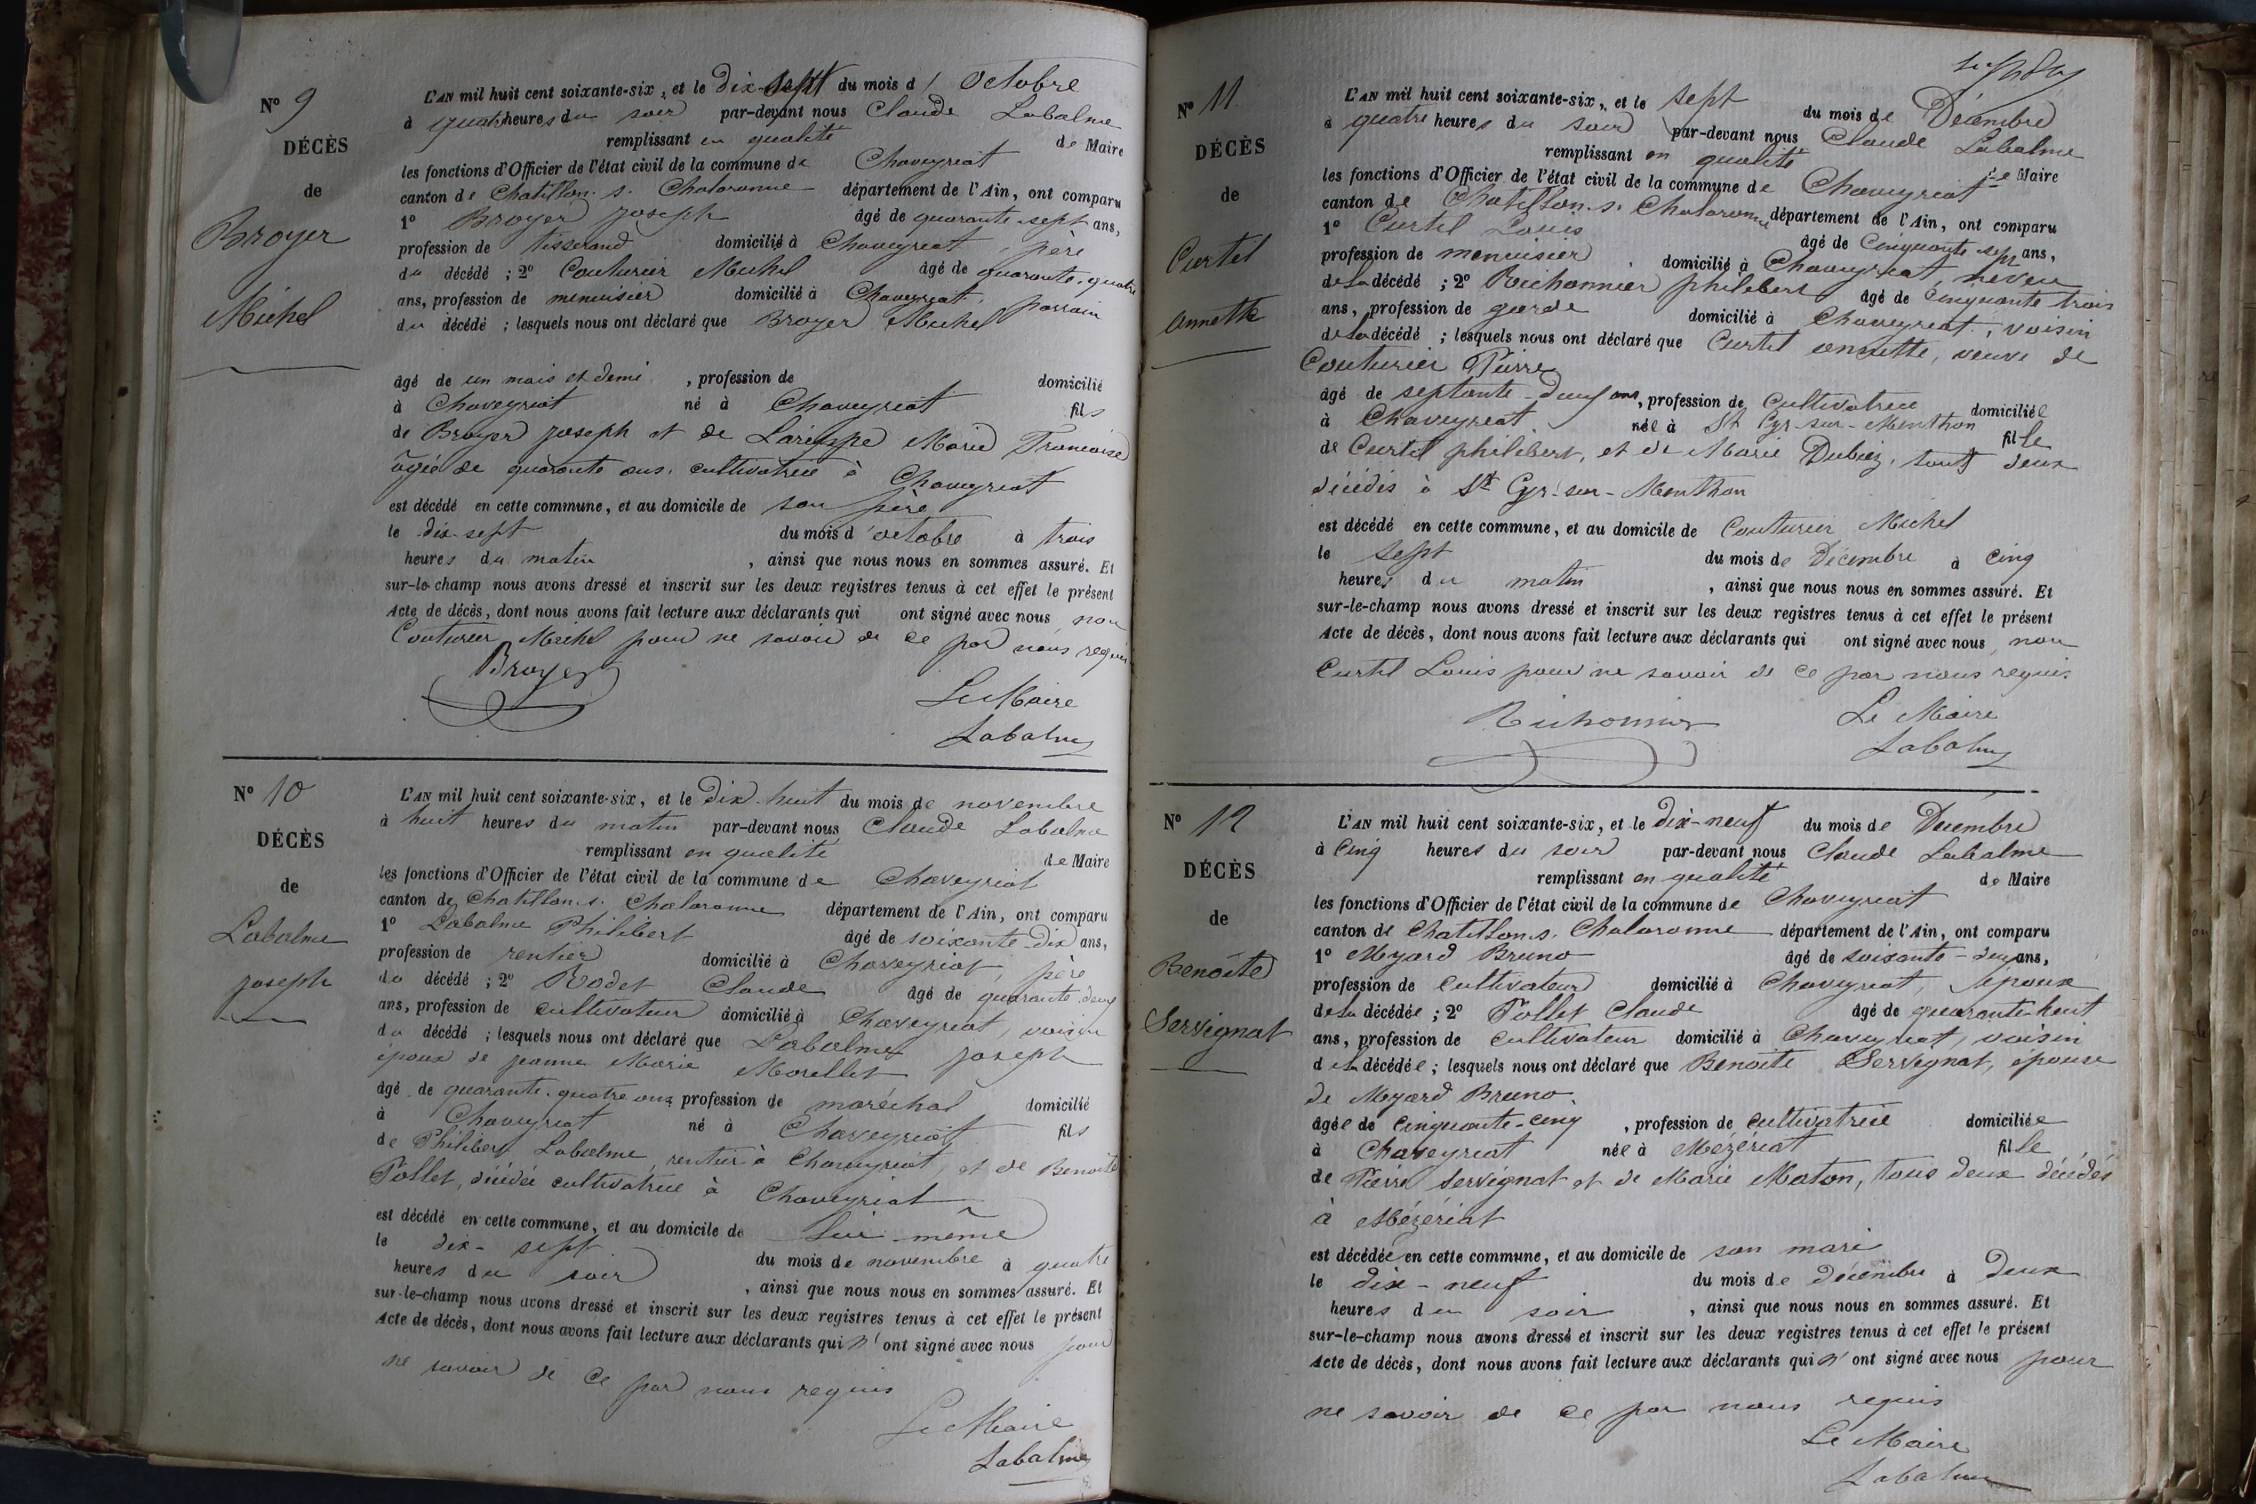 N° 9
DÉCÈS
de
Broyer
Michel
L'AN mil huit cent soixante-six, et le dix-sept du mois d'Octobre
à quatre heures du soir par-devant nous Claude Labalme
remplissant en qualité de Maire
les fonctions d'Officier de l'état civil de la commune de Chaveyriat
canton de Chatillon-s-Chalaronne département de l'Ain, ont comparu
1° Broyer joseph âgé de quarante-sept ans,
profession de tisserand domicilié à Chaveyriat, père
du décédé ; 2° Couturier Michel âgé de quarante-quatre
ans, profession de menuisier domicilié à Chaveyriat, parrain
du décédé ; lesquels nous ont déclaré que Broyer Michel
âgé de un mois et demi, profession de domicilié
à Chaveyriat né à Chaveyriat fils
de Broyer joseph et de Marie Francoise
âgée de quarante ans, cultivatrice à Chaveyriat
est décédé en cette commune, et au domicile de son père
le dix-sept du mois d'octobre à trois
heures du matin, ainsi que nous nous en sommes assuré. Et
sur-le-champ nous avons dressé et inscrit sur les deux registres tenus à cet effet le présent
Acte de décès, dont nous avons fait lecture aux déclarants qui ont signé avec nous, non
Couturier Michel pour ne savoir de ce par nous requis
Broyer
Le Maire
Labalme
N° 10
DÉCÈS
de
Labalme
joseph
L'AN mil huit cent soixante-six, et le dix-huit du mois de novembre
à huit heures du matin par-devant nous Claude Labalme
remplissant en qualité de Maire
les fonctions d'Officier de l'état civil de la commune de Chaveyriat
canton de Chatillon-s-Chalaronne département de l'Ain, ont comparu
1° Labalme Philibert âgé de soixante-dix ans,
profession de rentier domicilié à Chaveyriat, père
du décédé ; 2° Rodet Claude âgé de quarante-deux
ans, profession de cultivateur domicilié à Chaveyriat, voisin
du décédé ; lesquels nous ont déclaré que Labalme joseph
époux de jeanne Marie Morellet
âgé de quarante-quatre ans, profession de maréchal domicilié
à Chaveyriat né à Chaveyriat fils
de Philibert Labalme, rentier à Chaveyriat, et de Benoite
Tollet, décédée cultivatrice à Chaveyriat
est décédé en cette commune, et au domicile de lui-même
le dix-sept du mois de novembre à quatre
heures du soir, ainsi que nous nous en sommes assuré. Et
sur-le-champ nous avons dressé et inscrit sur les deux registres tenus à cet effet le présent
Acte de décès, dont nous avons fait lecture aux déclarants qui n'ont signé avec nous pour
ne savoir de ce par nous requis
Le Maire
Labalme
N° 11
DÉCÈS
de
Curtil
annette
L'AN mil huit cent soixante-six, et le sept du mois de Décembre
à quatre heures du soir par-devant nous Claude Labalme
remplissant en qualité de Maire
les fonctions d'Officier de l'état civil de la commune de Chaveyriat
canton de Chatillon-s-Chalaronne département de l'Ain, ont comparu
1° Curtil Louis âgé de Cinquante-sept ans,
profession de menuisier domicilié à Chaveyriat, neveu
de la décédé ; 2° Richonnier philibert âgé de cinquante trois
ans, profession de garde domicilié à Chaveyriat, voisin
de la décédé ; lesquels nous ont déclaré que Curtil annette, veuve de
Couturier Pierre
âgé de septante-deux ans, profession de cultivatrice domiciliée
à Chaveyriat née à St Cyr-sur-Menthon fille
de Curtil philibert, et de Marie Dubiez, tous deux
décédés à St Cyr-sur-Menthon
est décédé en cette commune, et au domicile de Couturier Michel
le sept du mois de Décembre à cinq
heures du matin, ainsi que nous nous en sommes assuré. Et
sur-le-champ nous avons dressé et inscrit sur les deux registres tenus à cet effet le présent
Acte de décès, dont nous avons fait lecture aux déclarants qui ont signé avec nous, non
Curtil Louis pour ne savoir de ce par nous requis
Richonnier
Le Maire
Labalme
N° 12
DÉCÈS
de
Benoite
Servignat
L'AN mil huit cent soixante-six, et le dix-neuf du mois de Décembre
à cinq heures du soir par-devant nous Claude Labalme
remplissant en qualité de Maire
les fonctions d'Officier de l'état civil de la commune de Chaveyriat
canton de Chatillon-s-Chalaronne département de l'Ain, ont comparu
1° Meyard Bruno âgé de soixante-deux ans,
profession de cultivateur domicilié à Chaveyriat, époux
de la décédée ; 2° Tollet Claude âgé de quarante-huit
ans, profession de cultivateur domicilié à Chaveyriat, voisin
de la décédée ; lesquels nous ont déclaré que Benoite Servignat, épouse
de Meyard Bruno
âgée de cinquante-cinq, profession de cultivatrice domiciliée
à Chaveyriat née à Mézériat fille
de Pierre Servignat et de Marie Maton, tous deux décédés
à Mézériat
est décédée en cette commune, et au domicile de son mari
le dix-neuf du mois de décembre à deux
heures du soir, ainsi que nous nous en sommes assuré. Et
sur-le-champ nous avons dressé et inscrit sur les deux registres tenus à cet effet le présent
Acte de décès, dont nous avons fait lecture aux déclarants qui n'ont signé avec nous pour
ne savoir de ce par nous requis
Le Maire
Labalme